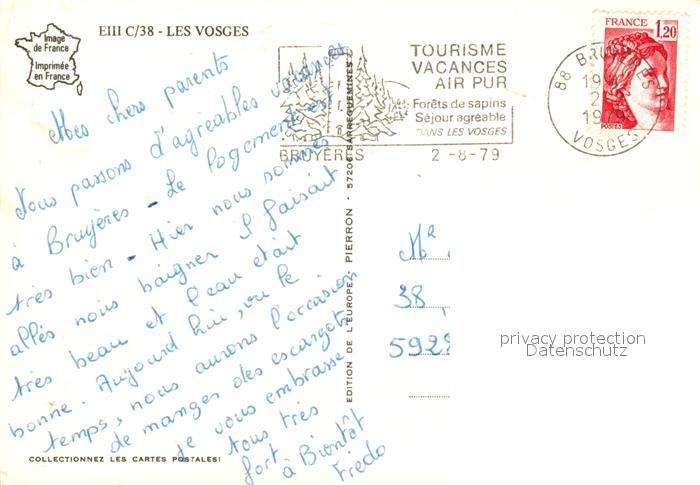 Image
de France
Imprimée
en France
EIII C/38 - LES VOSGES
Mes chers parents
Nous passons d'agréables vacances
à Bruyères - Le logement est
très bien - Hier nous sommes
allés nous baigner il faisait
très beau et l'eau était
bonne. Aujourd'hui, vu le
temps, nous aurons l'occasion
de manger des escargots
je vous embrasse
tous très
fort. à Bientôt
Frédo
COLLECTIONNEZ LES CARTES POSTALES!
EDITION DE L'EUROPE - PIERRON - 57206 SARREGUEMINES
TOURISME
VACANCES
AIR PUR
Forêts de sapins
Séjour agréable
DANS LES VOSGES
BRUYÈRES
2-8-79
88 BRUYERES
2
1979
VOSGES
FRANCE
1,20
POSTES
Mr
38
5922
privacy protection
Datenschutz